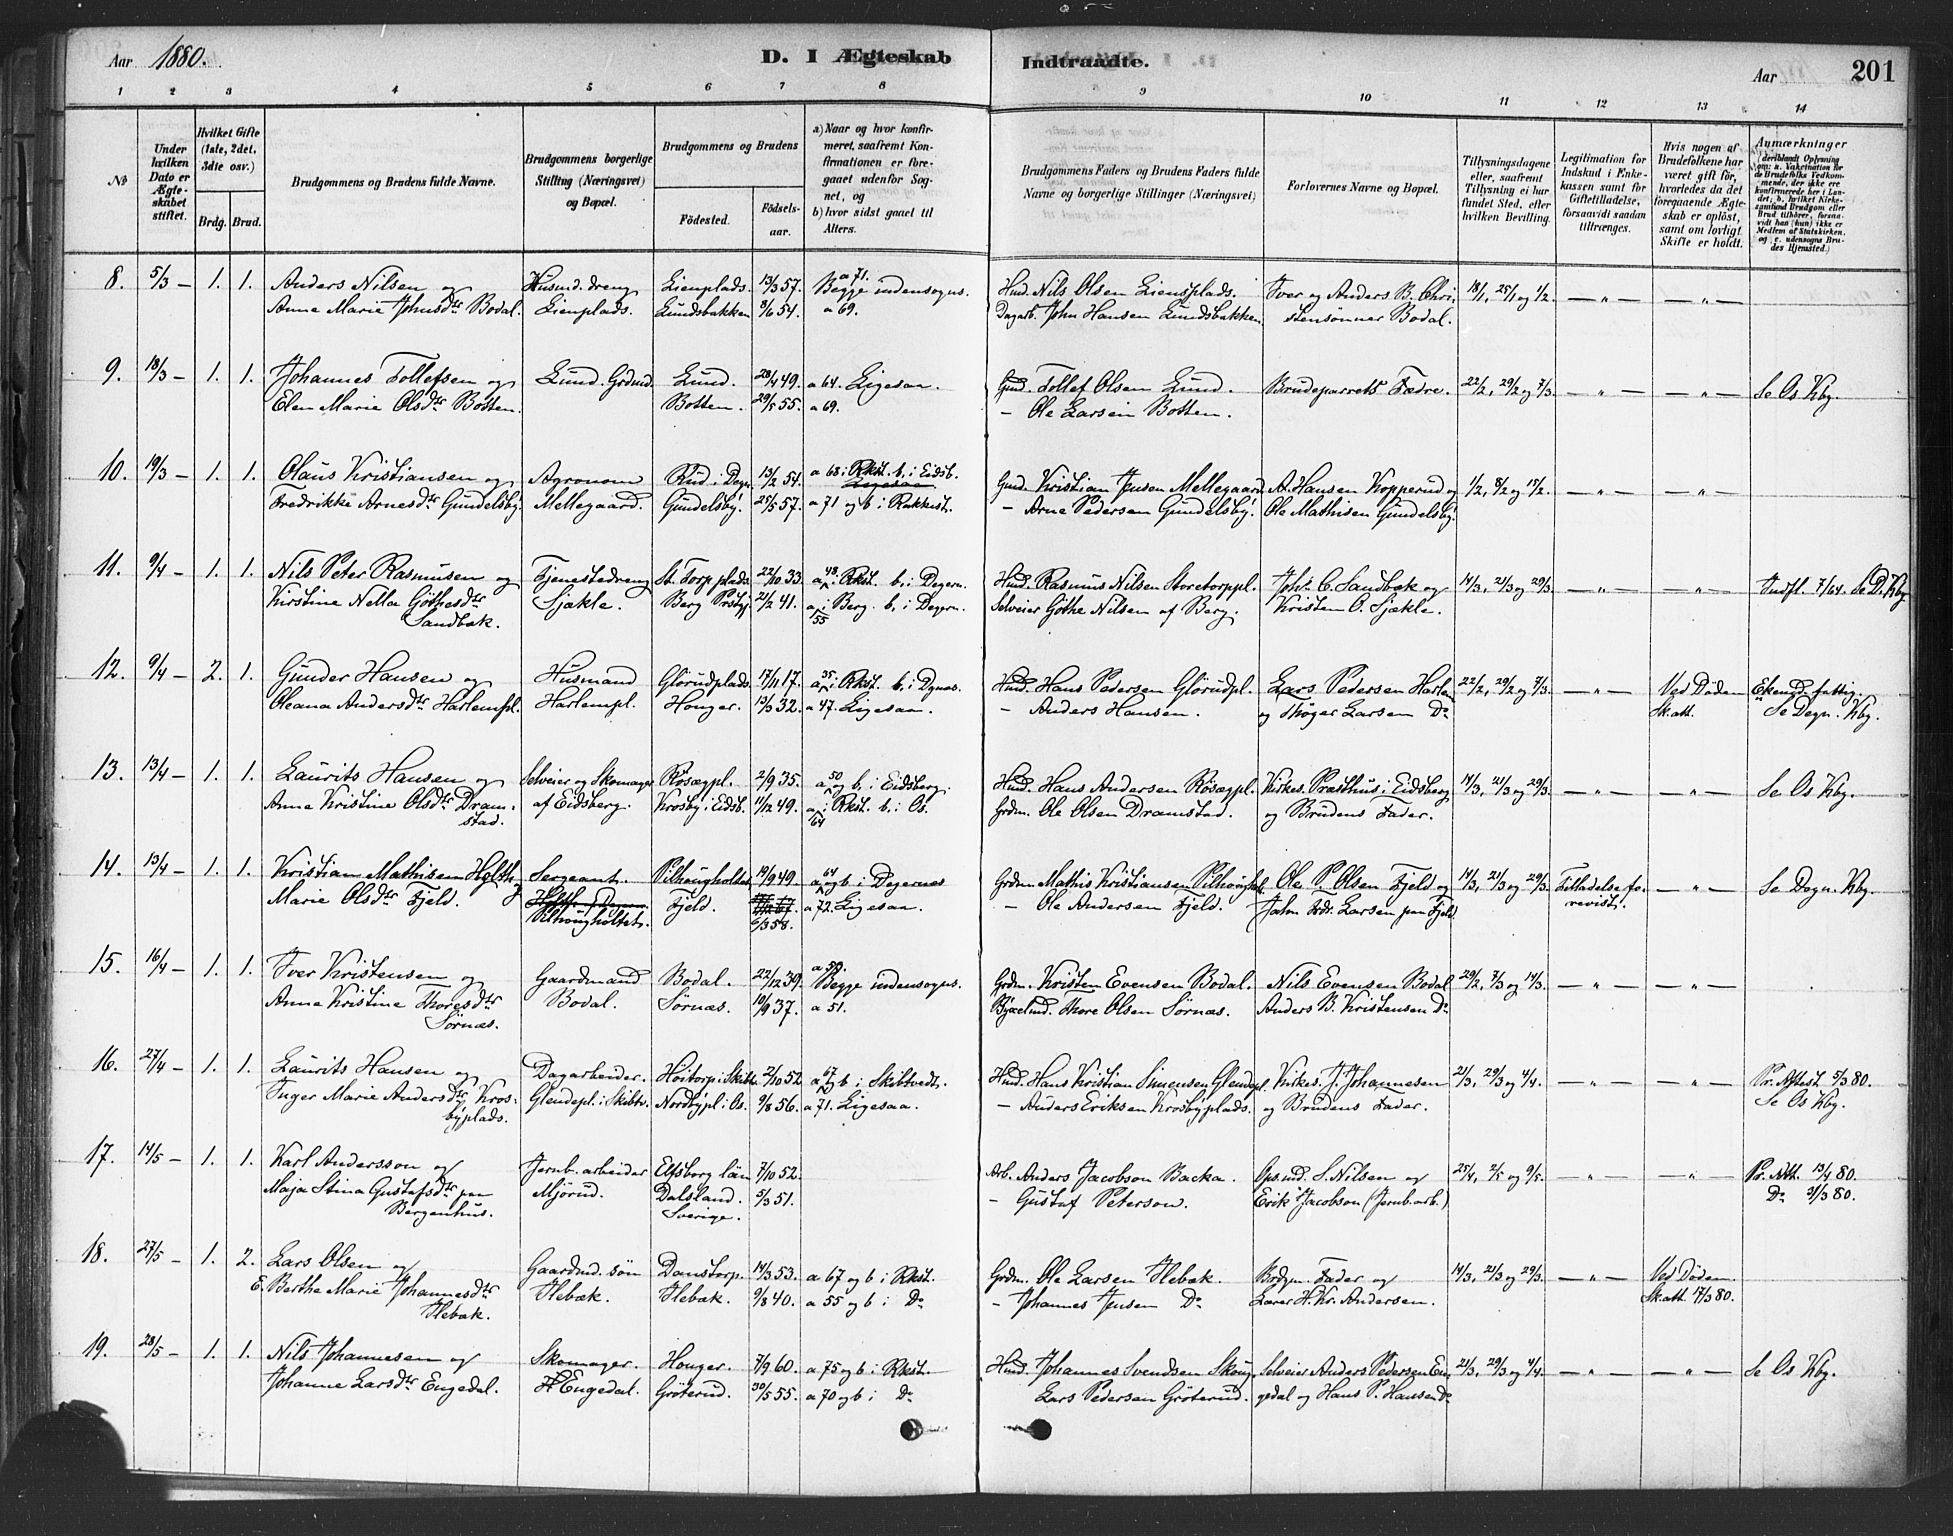 Aar 1880.
D. I Ægteskab Indtraadte.
Aar 201
1 2 3 4 5 6 7 8 9 10 11 12 13 14
№
Under hvilken Dato er Ægteskabet stiftet.
Hvilket Gifte (1ste, 2det, 3die osv.)
Brdg. Brud.
Brudgommens og Brudens fulde Navne.
Brudgommens borgerlige Stilling (Næringsvei) og Bopæl.
Brudgommens og Brudens
Fødested. Fødselsaar.
a) Naar og hvor konfirmeret, saafremt Konfirmationen er foregaaet udenfor Sognet, og
b) hvor sidst gaaet til Alters.
Brudgommens Faders og Brudens Faders fulde Navne og borgerlige Stillinger (Næringsvei)
Forlovernes Navne og Bopæl.
Tillysningsdagene eller, saafremt Tillysning ei har fundet Sted, efter hvilken Bevilling.
Legitimation for Indskud i Enkekassen samt for Giftetilladelse, forsaavidt saadan tiltrænges.
Hvis nogen af Brudefolkene har været gift før, hvorledes da det foregaaende Ægteskab er opløst, samt om lovligt Skifte er holdt.
Anmærkninger
8. 5/3 — 1. 1. Anders Nilsen og Husmd. dreng Lienplads 13/3 57. a 71. Begge indensogns. Hud. Nils Olsen Liensplads. Iver og Anders B. Chri- 18/1, 25/1 og 1/2. — „ — — „ —
Anne Marie Johnsdtr Bodal. Lienplads. Lundsbakken 8/6 54. a 69. Dagarb. John Hansen Lundsbakken stensønner Bodal.
9. 18/3 — 1. 1. Johannes Tollefsen og Lund. Grdmd. Lund. 28/4 49. a 64. Ligesaa. Gmd. Tollef Olsen Lund. Brudeparrets Fædre. 22/2, 29/2 og 7/3. — „ — — „ — Se Os Kbg.
Elen Marie Olsdtr Botten. Botten. 29/5 55. a 69. — Ole Larsen Botten.
10. 19/3 — 1. 1. Olaus Kristiansen og Agronom Rud i Degn. 13/2 54. a 68 i Rkst. b. i Eidsb. Gmd. Kristian Jensen Mellegaard A. Hansen Kopperud og 1/2, 8/2 og 15/2. — „ — — „ —
Fredrikke Arnesdtr Gundelsby. Mellegaard. Gundelsby. 25/5 57. a 71 og b i Rakkest. — Arne Pedersen Gundelsby. Ole Mathisen Gundelsby.
11. 9/4 — 1. 1. Nils Peter Rasmusen og Tjenestedreng St. Torpplads 22/10 33. a 48. i Rkst. b. i Degern. Hud. Rasmus Nilsen Storetorppl. Johs C. Sandbæk og 14/3, 21/3 og 29/3. — „ — — „ — Indfl. 7/64. Se D. Kbg
Kirstine Nella Göthesdtr Sjækle. Berg Prstgj. 21/2 41. a i Berg. b. i Degern. Selveier Göthe Nilsen af Berg. Kristen O. Sjækle.
Sandbæk. 55
12. 9/4 — 2. 1. Gunder Hansen og Husmand Glörudplads 17/11 17. a 35. i Rkst. b. i Dgnæs. Hud. Hans Pedersen Glörudpl. Lars Pedersen Harlem 22/2, 29/2 og 7/3. — „ — Ved Döden Ekemd. fattig.
Oleana Andersdtr Harlempl. Harlempl. Honger. 13/3 32. a 47. Ligesaa. — Anders Hansen. og Thöger Larsen Do Sk.att. Se Degn. Kbg.
13. 13/4 — 1. 1. Laurits Hansen og Selveier og Skomager Røsægpl. 2/9 35. a 50 og b. i Eidsberg. Hud. Hans Andersen Røsægpl. Kirkes. Præsthus i Eidsberg 14/3, 21/3 og 29/3. — „ — — „ — Se Os Kbg.
Anne Kristine Olsdtr Dram- af Eidsberg. Krosby i Eidsb. 11/12 49. a i Rkst. b. i Os. Grdm. Ole Olsen Dramstad. og Brudens Fader.
stad. 64
14. 13/4 — 1. 1. Kristian Mathisen Holth og Sergeant. Pilhougholtet 14/9 49. a 64 og b i Degernes Grdm. Mathis Kristiansen Pilhoughol. Ole P. Olsen Fjeld og 14/3, 21/3 og 29/3. Tilladelse fo- — „ — Se Degn. Kbg.
Marie Olsdtr Fjeld. Pilhougholtet. Fjeld. 6/3 58. a 72. Ligesaa. — Ole Andersen Fjeld. Larsen paa Fjeld revist.
15. 16/4 — 1. 1. Iver Kristensen og Gaardmand Bodal. 22/12 39. Begge indensogns. Grdm. Kristen Evensen Bodal. Nils Evensen Bodal 29/2, 7/3 og 14/3. — „ — — „ —
Anna Kristine Thoresdtr Bodal. Sörnæs. 10/9 37. a 51. Thore Olsen Sörnæs. Anders B. Kristensen Do
Sörnæs.
16. 27/4 — 1. 1. Laurits Hansen og Dagarbeider. Höitorp i Skibtv. 2/10 52 a 67 og b i Skibtvedt. Hud. Hans Kristian Simensen Glendepl. Kirkes. J. Johannesen 21/3, 29/3 og 4/4. — „ — — „ — Pr. Attest 5/3 80.
Inger Marie Andersdtr Kros- Glendepl. i Skibtv. Nordbypl. i Os. 9/8 56. a 71. Ligesaa. — Anders Eriksen Krosbyplads. og Brudens Fader. Se Os Kbg.
byplads.
17. 14/5 — 1. 1. Karl Andersson og Jernb. arbeider Elfsborg län 7/10 52. Arb. Anders Jacobson Backa. Opsmd. S. Nilsen og 25/4, 2/5 og 9/5. — „ — — „ — Pr. Att. 13/4 80.
Maja Stina Gustafsdtr paa Mjörud. Dalsland. 5/3 51. — Gustaf Peterson. Erik Jacobson (Jernb.arb.) Do 31/3 80.
Bergenhus. Sverige.
18. 27/5 — 1. 2. Lars Olsen og Gaardmd. søn Danstorp. 14/3 53. a 67 og b i Rkst. Grdm. Ole Larsen Ilebæk. Brdgm. Fader og 14/3, 21/3 og 29/3. — „ — Ved Döden
E. Berthe Marie Johannesdtr Ilebæk. Ilebæk. 9/8 40. a 55 og b i Do — Johannes Jensen Do Lærer H. Kr. Andersen. Sk.att. 17/3 80.
Ilebæk.
19. 28/5 — 1. 1. Nils Johannesen og Skomager. Honger. 7/9 60. a 75 og b i Rkst. Hud. Johannes Svendsen Skoug. Selveier Anders Pedersen En- 21/3, 29/3 og 4/4. — „ — — „ — Se Os Kbg.
Johanne Larsdtr Engedal. Engedal. Gröterud. 30/5 55. a 70 og b i Do Lars Pedersen Gröterud. gedal og Hans P. Hansen Do